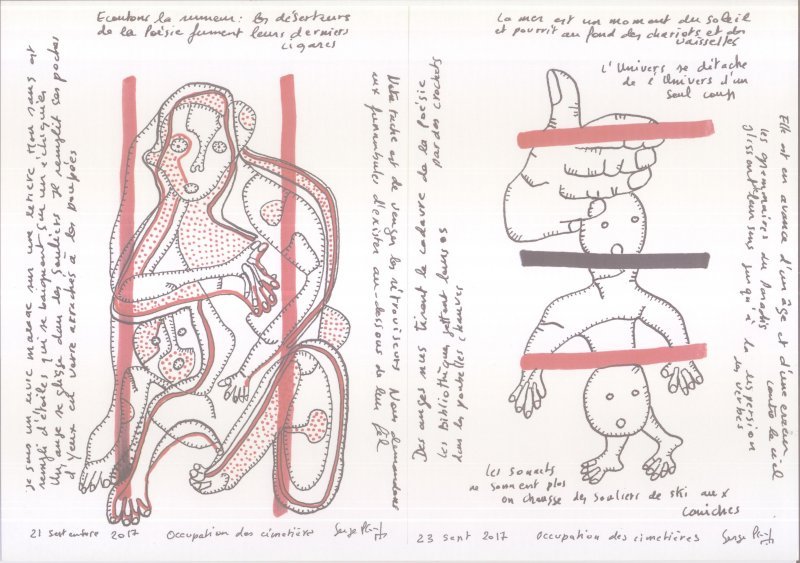 Ecoutons la rumeur : les déserteurs
de la Poésie fument leurs derniers
cigares
je suis une ivre marane sur une letiere Mon sang est
rempli d'étoiles qui se baignent sur un échiquier
Un ange se glisse dans les souliers Il remplit ses poches
d'yeux en verre arrachés à les poupées
Votre tache est de venger les rétroviseurs Nous demandons
aux funambules d'exister au-dessous de leur fil
21 septembre 2017 Occupation des cimetières
La mer est un moment du soleil
et pourrit au fond des chariots et des
vaisselles
L'Univers se détache
de l'Univers d'un
seul coup
Des anges nus tirent le cadavre de la Poésie
par des crochets
Les bibliothèques jettent leurs os
dans les poubelles chauves
Elle est en avance d'un âge et d'une erreur
contre le ciel
Les grammaires du Paradis
glissent leur sens jusqu'à la dispersion
des verbes
Les sonnets
ne sonnent plus
On chausse des souliers de ski aux
caniches
23 sept 2017 Occupation des cimetières